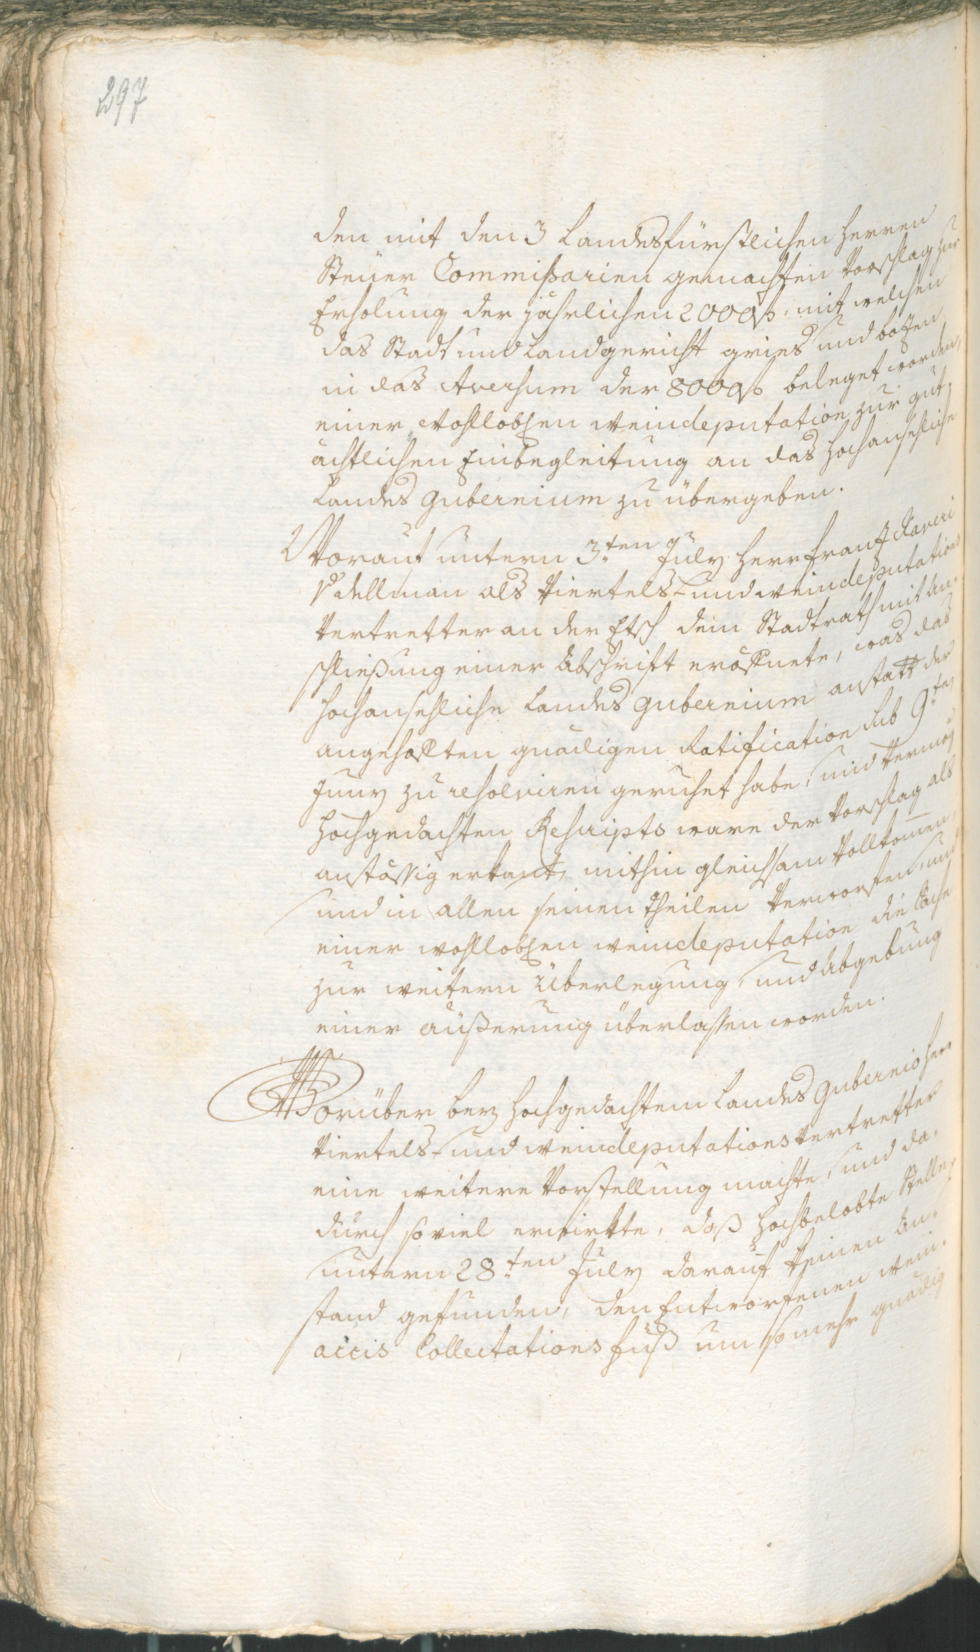 297
den mit den 3 Landesfürstlichen Herren
Steüer Commißarien gemachten Vorschlag zur
Erholung der jährlichen 2000 f. mit welchen
das Stadt und Landgericht gries und bozen
in das Aversum der 8000 f. beleget worden,
einer wohlloben weindeputation zur gut¬
ächtlichen Einbegleitung an das hochansehliche
Landes gubernium zu übergeben.
Worauf untern 3.ten July herr Franz Xaveri
als Viertels- und weindeputations
Vertretter an der Etsch dem Stadtrath mit An¬
schließung einer Abschrift eröffnete, was das
hochansehliche Landes gubernium anstatt der
angehofften gnädigen Ratification sub 9.ten
Juny zu resolviren geruhet habe, und vermög
hochgedachten Rescripts ware der Vorschlag als
anstössig erkant, mithin gleichsam Vollkomen,
und in allen seinen theilen verworfen und
einer wohlloben weindeputation die Sache
zur weitern Überlegung, und Abgebung
einer äußerung überlassen worden.
Worüber bey hochgedachtem Landes Gubernio herr
Viertels- und weindeputations Vertretter
eine weitere Vorstellung machte, und da¬
durch so viel erwirkte, daß hochbelobte Stelle
untern 28.ten July darauf keinen An¬
stand gefunden, den Entworfenen wein¬
accis Collectations fuß um so mehr gnädig